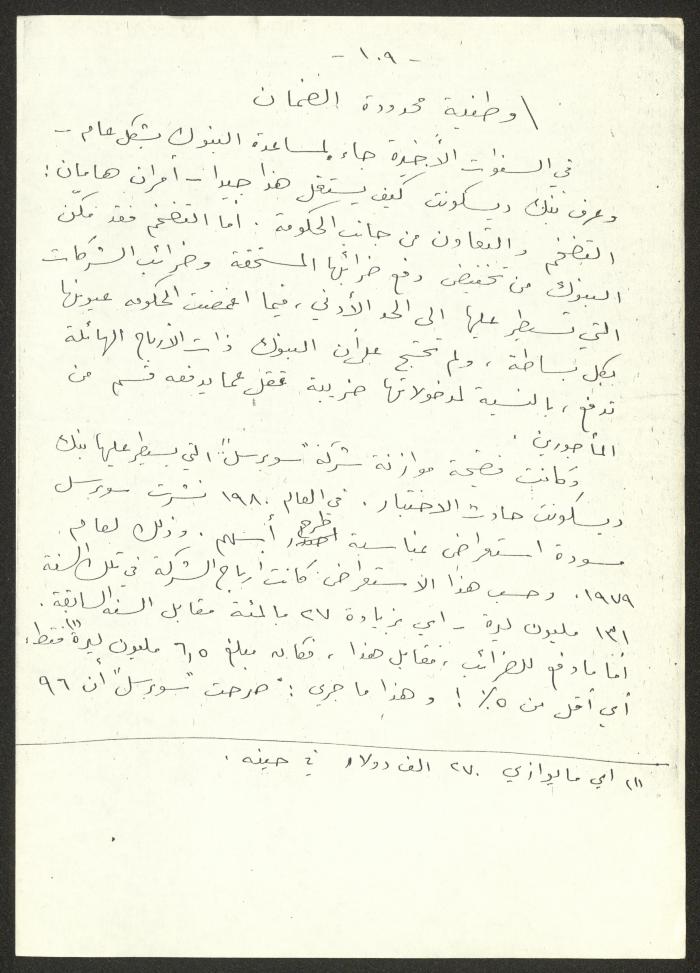 - ١٠٩ -
\ وطنية محدودة الضمان
في السنوات الأخيرة جاء لمساعدة البنوك بشكل عام -
وعرف بنك ديسكونت كيف يستغل هذا جيدا - أمران هامان :
التضخم والتعاون من جانب الحكومة . أما التضخم فقد مكن
البنوك من تخفيض دفع ضرائبها المستحقة وضرائب الشركات
التي تسيطر عليها الى الحد الأدنى ، فيما اغمضت الحكومه عيونها
بكل بساطة ، ولم تحتج على أن البنوك ذات الأرباح الهائلة
تدفع ، بالنسبة لمدخولاتها ضريبة تقل عما يدفعه قسم من
المأجورين .
وكانت فضيحة موازنة شركة "سوبرسل" التي يسيطر عليها بنك
ديسكونت حادث الاختبار . في العام ١٩٨٠ نشرت سوبرسل
مسودة استعراض بمناسبة طرح أسهم . وذلك لعام
١٩٧٩ . وحسب هذا الاستعراض كانت ارباح الشركة في تلك السنة
١٣١ مليون ليرة - اي بزيادة ٢٧ بالمئة مقابل السنه السابقة .
أما ما دفع للضرائب ، مقابل هذا ، فكان مبلغ ٦,٥ مليون ليرة (١١) فقط ،
أي أقل من ٥٪ ! وهذا ما جرى : صرحت "سوبرسل" أن ٩٦
(١١) اي ما يوازي ٢٧٠ الف دولار في حينه .